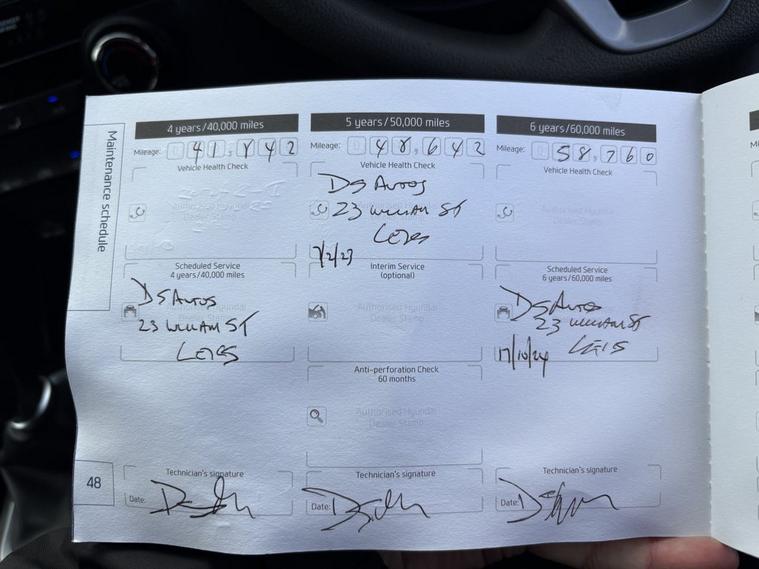 Maintenance schedule
4 years/40,000 miles
Mileage:
Vehicle Health Check
Scheduled Service
4 years/40,000 miles
DS Autos
23 William ST
Technician's signature
Date:
5 years/50,000 miles
Mileage: 48,642
Vehicle Health Check
DS Autos
23 William ST
Interim Service
(optional)
Authorised Hyundai
Dealer Stamp
Anti-perforation Check
60 months
Authorised Hyundai
Dealer Stamp
Technician's signature
Date:
6 years/60,000 miles
Mileage: 58,760
Vehicle Health Check
Scheduled Service
6 years/60,000 miles
DS Autos
23 William ST
17/10/24
Technician's signature
Date:
48